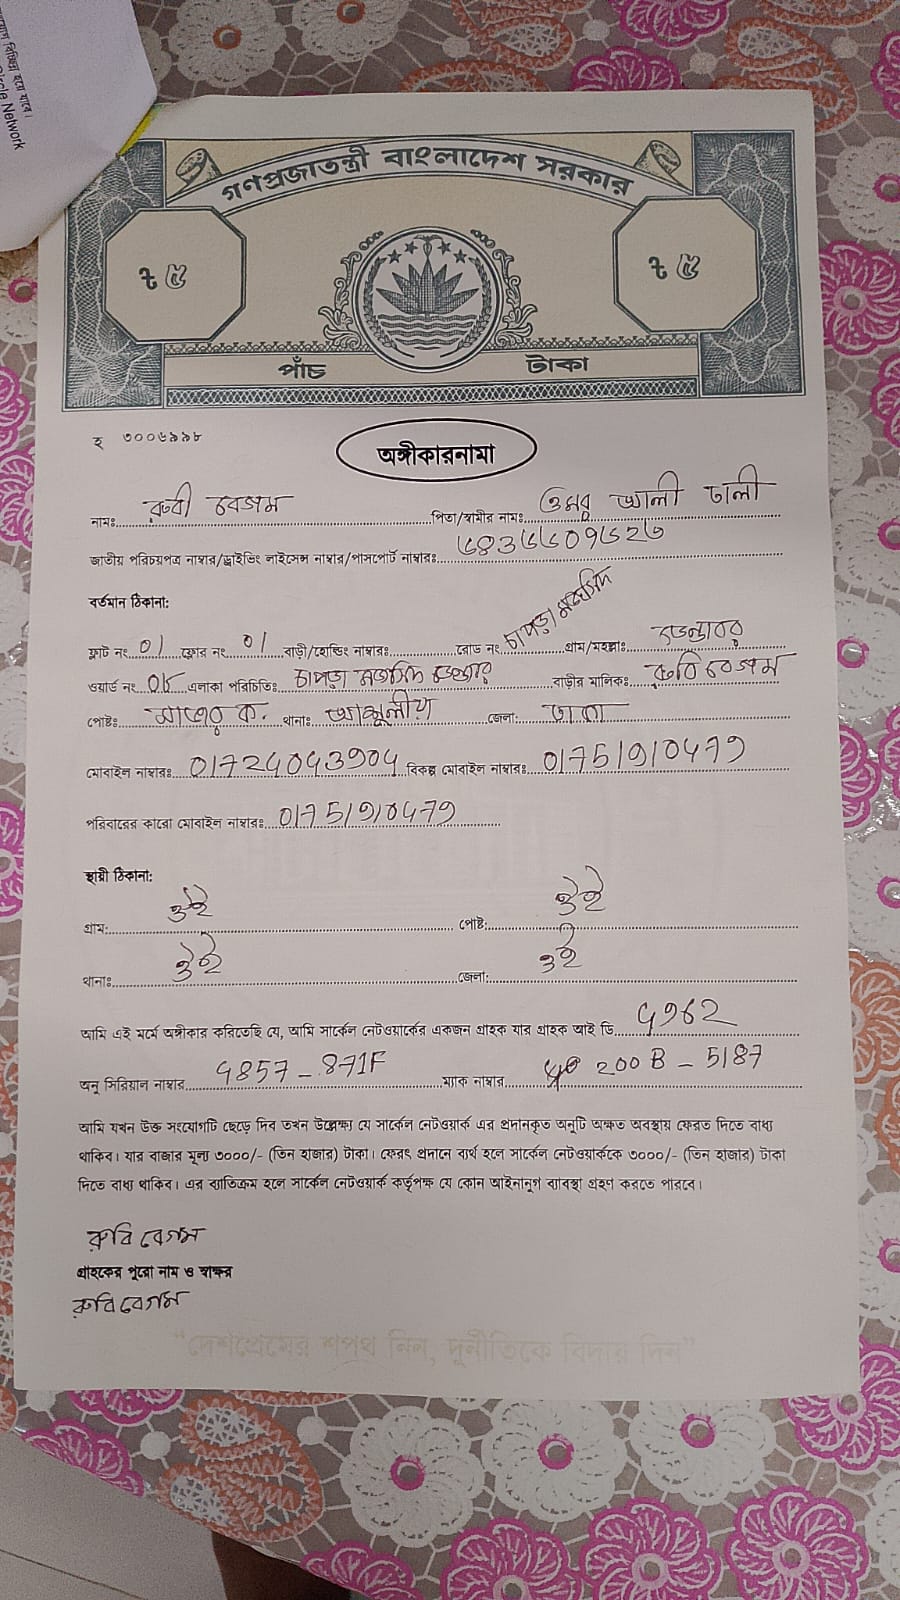 গণপ্রজাতন্ত্রী বাংলাদেশ সরকার
৳ ৫ ৳ ৫
পাঁচ টাকা
ই ৩০০৬৯৯৮
অঙ্গীকারনামা
নামঃ রুবী বেগম পিতা/স্বামীর নামঃ ওমর আলী ঢালী
জাতীয় পরিচয়পত্র নাম্বার/ড্রাইভিং লাইসেন্স নাম্বার/পাসপোর্ট নাম্বারঃ
বর্তমান ঠিকানা:
ফ্লাট নং 01 ফ্লোর নং 01 বাড়ী/হোল্ডিং নাম্বারঃ রোড নং চাপড়া মসজিদ গ্রাম/মহল্লাঃ
ওয়ার্ড নং এলাকা পরিচিতিঃ চাপড়া মসজিদ বাড়ীর মালিকঃ রুবি বেগম
পোষ্টঃ থানাঃ আশুলীয়া জেলা: ঢাকা
মোবাইল নাম্বারঃ 01724043904 বিকল্প মোবাইল নাম্বারঃ 01751910479
পরিবারের কারো মোবাইল নাম্বারঃ 01751910479
স্থায়ী ঠিকানা:
গ্রাম: ঐই পোষ্ট: ঐই
থানাঃ ঐই জেলা: ঐই
আমি এই মর্মে অঙ্গীকার করিতেছি যে, আমি সার্কেল নেটওয়ার্কের একজন গ্রাহক যার গ্রাহক আই ডি
অনু সিরিয়াল নাম্বার 4857-871F ম্যাক নাম্বার 200B-5187
আমি যখন উক্ত সংযোগটি ছেড়ে দিব তখন উল্লেক্ষ্য যে সার্কেল নেটওয়ার্ক এর প্রদানকৃত অনুটি অক্ষত অবস্থায় ফেরত দিতে বাধ্য
থাকিব। যার বাজার মূল্য ৩০০০/- (তিন হাজার) টাকা। ফেরৎ প্রদানে ব্যর্থ হলে সার্কেল নেটওয়ার্ককে ৩০০০/- (তিন হাজার) টাকা
দিতে বাধ্য থাকিব। এর ব্যতিক্রম হলে সার্কেল নেটওয়ার্ক কর্তৃপক্ষ যে কোন আইনানুগ ব্যবস্থা গ্রহণ করতে পারবে।
রুবি বেগম
গ্রাহকের পুরো নাম ও স্বাক্ষর
রুবি বেগম
"দেশপ্রেমের শপথ নিন, দুর্নীতিকে বিদায় দিন"